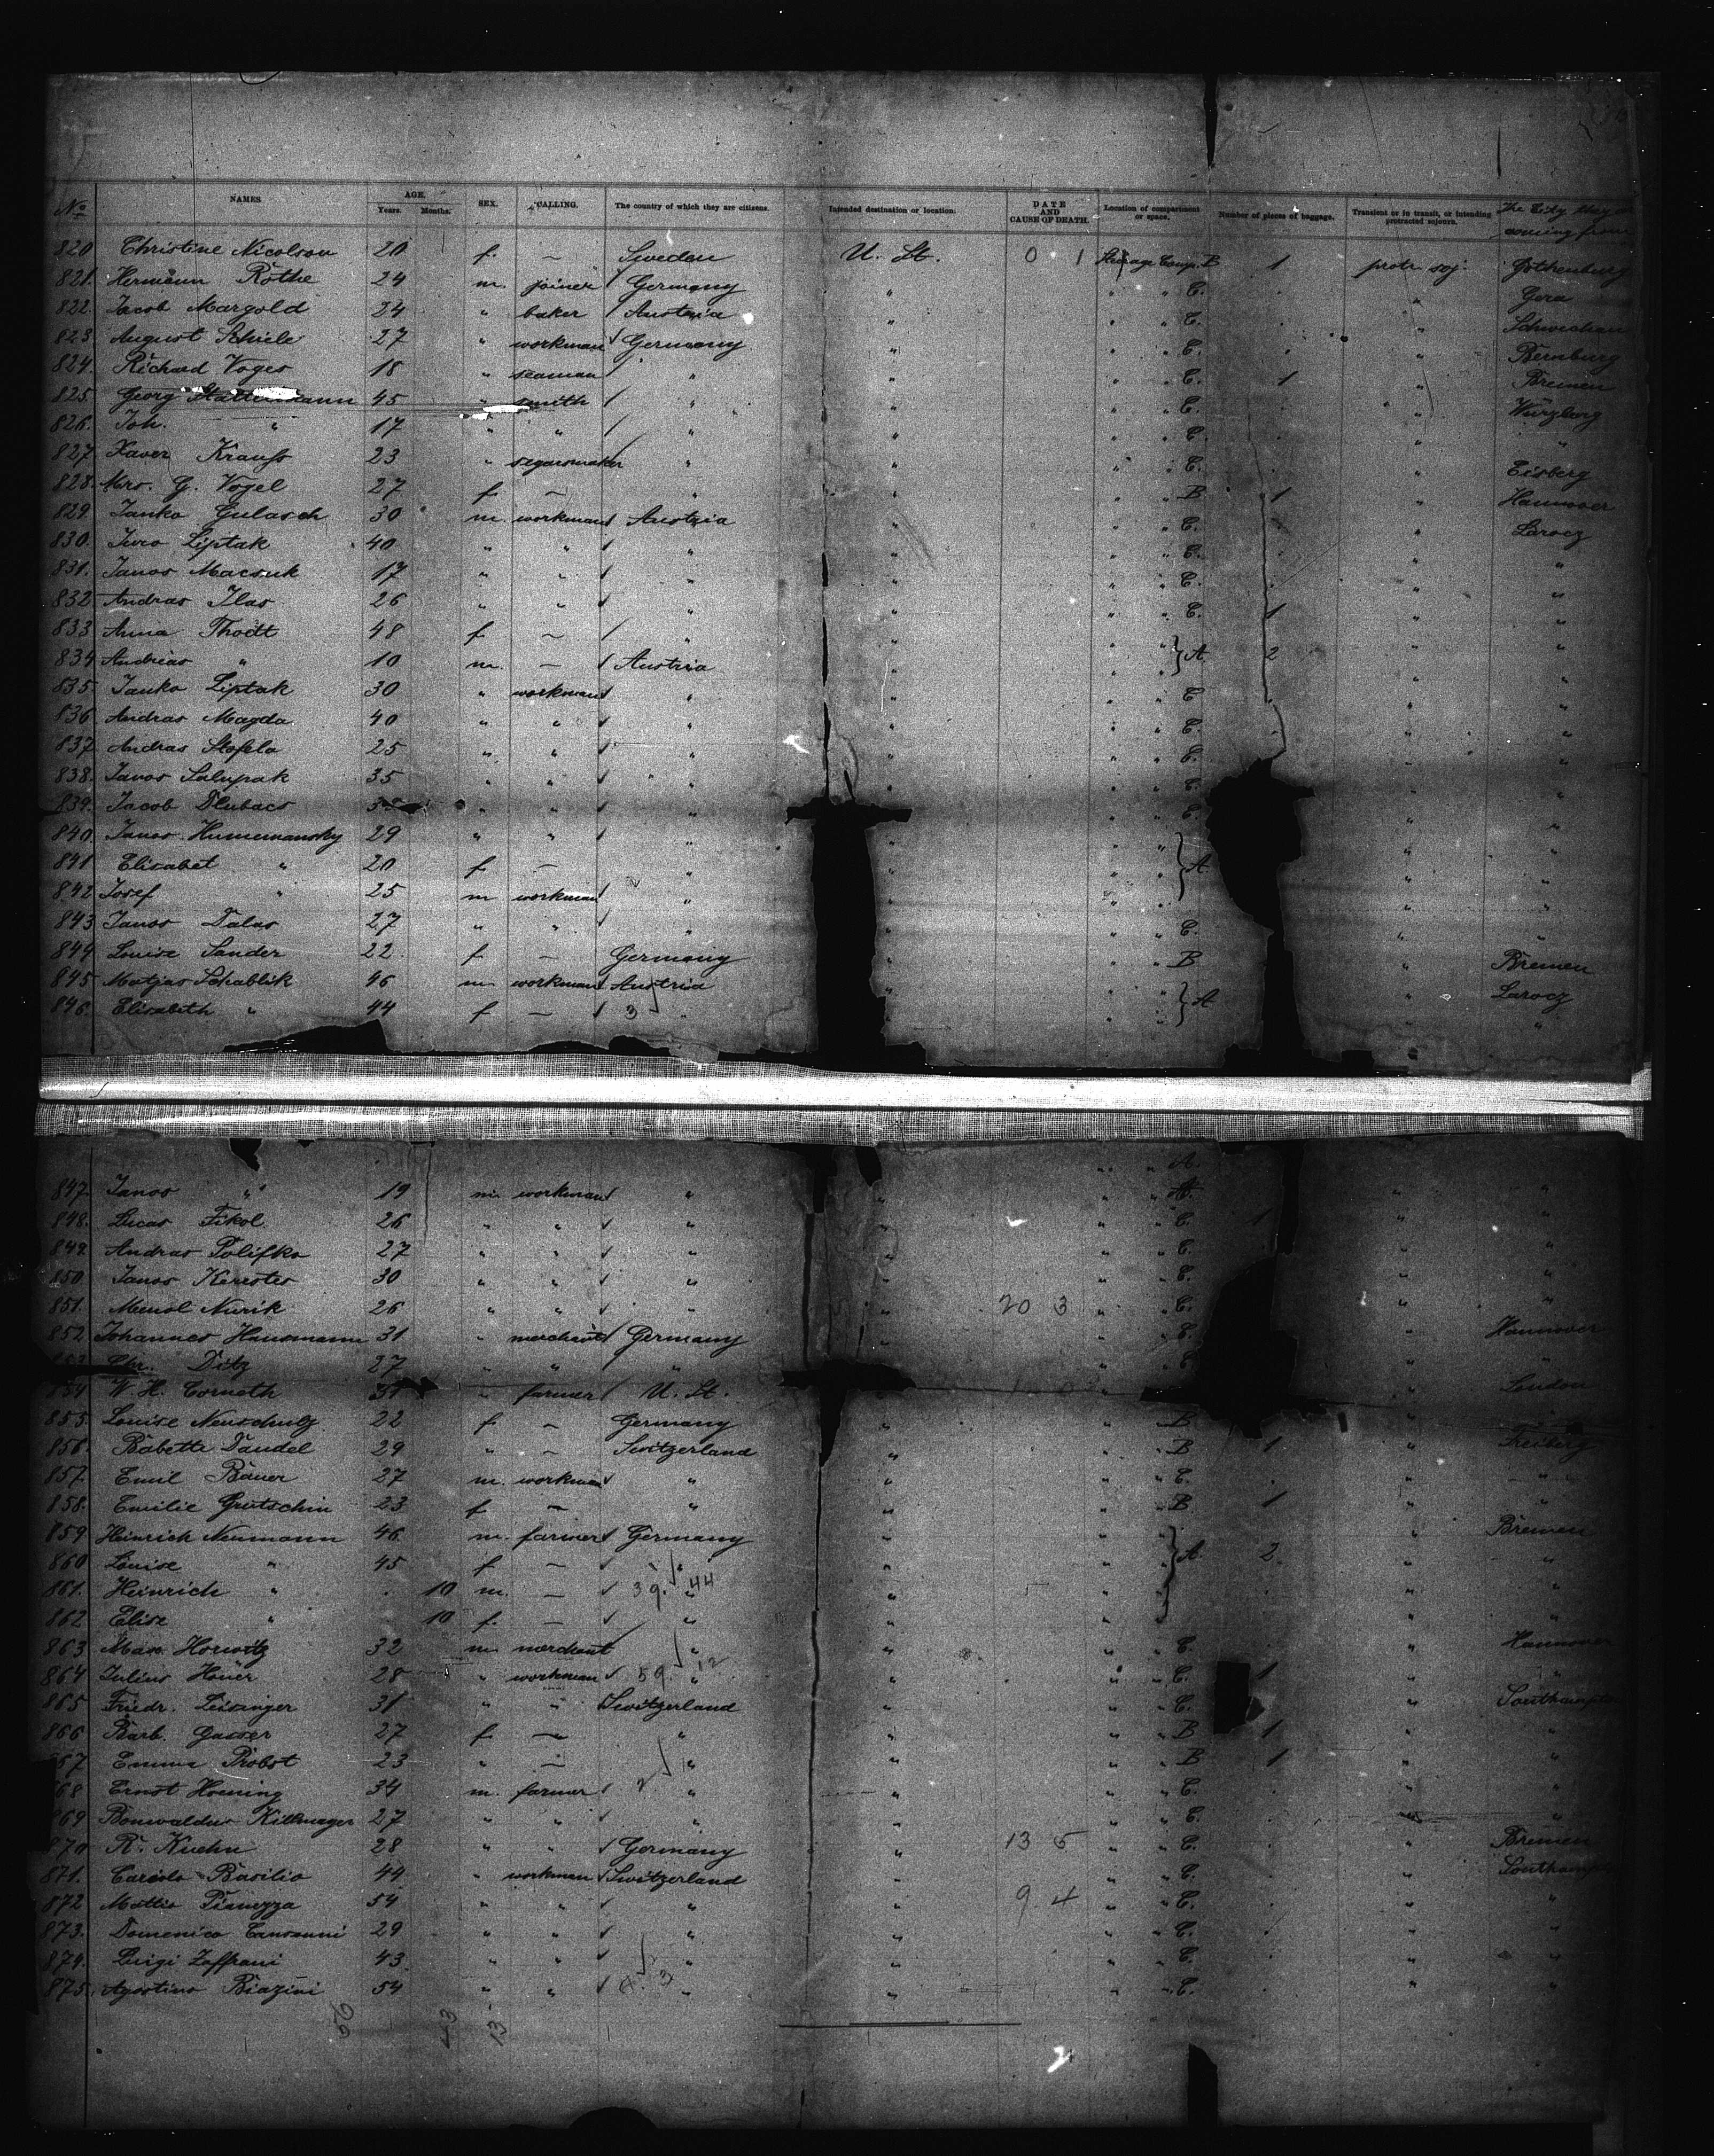 No NAMES. AGE. Years. Months. SEX. CALLING. The country of which they are citizens. Intended destination or location. DATE AND CAUSE OF DEATH. Location of compartment or space. Number of pieces of baggage. Transient or in transit, or intending protracted sojourn. The City they coming from
820 Christine Nicolson 20 f. — Sweden U. St. 0 1 Steerage Comp. B 1 protr. soj. Gothenburg
821. Hermann Rothe 24 m. joiner Germany " " " C. " Gera
822. Jacob Margold 24 " baker Austria " " " C. "
823 August Schiele 27 " workman Germany " " " C. " Bernburg
824. Richard Voges 18 " seaman " " " " C. 1 " Bremen
825. Georg 45 " smith " " " " C. " Würzburg
826. Joh. " 17 " " " " " " C. " "
827. Xaver Krauss 23 " segarsmaker " " " " C. " Eisberg
828. Mrs. G. Vogel 27 f — " " " " B 1 " Hannover
829 Janko Gulasch 30 m workman Austria " " " C. " Larocz
830. Juro Liptak 40 " " " " " " C. "
831. Janos Macsuk 17 " " " " " " C. " "
832 Andras Ilas 26 " " " " " " C. 1 " "
833 Anna Thodt 48 f — " " " " " "
834 Andreas " 10 m. — Austria " " " A 2 " "
835. Janko Liptak 30 " workman " " " " C " "
836 Andras Magda 40 " " " " " " C. " "
837. Andras Stofela 25 " " " " " " C. " "
838. Janos Salupak 35 " " " " " " C. " "
839. Jacob Dlubacs " " " " " " C. " "
840. Janos 29 " " " " " " " "
841 Elisabet " 20 f — " " " " A " "
842 Josef " 25 m workman " " " " " "
843 Janos Dalas 27 " " " " " " C. " "
844 Louise Sander 22 f — Germany " " " B " Bremen
845 Matjas Schablik 46 m workman Austria " " " A " Larocz
846. Elisabeth " 44 f — 3 " " " " "
" " A.
847. Janos " 19 m. workman " " " " A. " "
848. Lucas Fikol 26 " " " " " " C. 1 " "
849. Andras Polifko 27 " " " " " " C. " "
850 Janos Kerestes 30 " " " " " " C. " "
851. Nurik 26 " " " " 20 3 " " C. " "
852 Johannes Hausmann 31 " merchant Germany " " " C. " Hannover
Chr. Ditz 27 " " " " C " "
854 W. H. Cornoth " farmer U. St. London
855. Louise Neuschulz 22 f — Germany " " B "
856. Babette Daudel 29 " — Switzerland " " " B 1 " Freiberg
857. Emil Bauer 27 m. workman " " " " C. " "
858. Emilie Grutschin 23 f — " " " " B 1 " "
859 Heinrich Neumann 46 m. farmer Germany " " " Bremen
860 Louise " 45 f — " " " " A. 2 " "
861. Heinrich " 10 m. — 39. 44 " " " " " "
862 Elise " 10 f. — " " " " " "
863 Max Horwitz 32 m merchant " " " " C. " Hannover
864 Julius 28 " workman 59. 12 " " " " C. 1 " "
865 Friedr. Leisinger 31 " " Switzerland " " " C. " Southampton
866 Barb. Gasser 27 f — " " " " B 1 " "
867 Emma Probst 23 " — " " " " B 1 " "
868 Ernst Hoening 34 m. farmer 2 " " " " C. " "
869 27 " " " " " " C. " "
870 R. Kuehn 28 " " Germany " 13 5 " " C. " Bremen
871. Basilio 44 " workman Switzerland " " " C. "
872 54 " " " " 9 4 " " C. " "
873. Domenico 29 " " " " " " C. " "
874. Luigi Zaffrani 43 " " " " " " C. " "
875. Agostino Biazini 54 " " " " " " C. " "
56 43 13